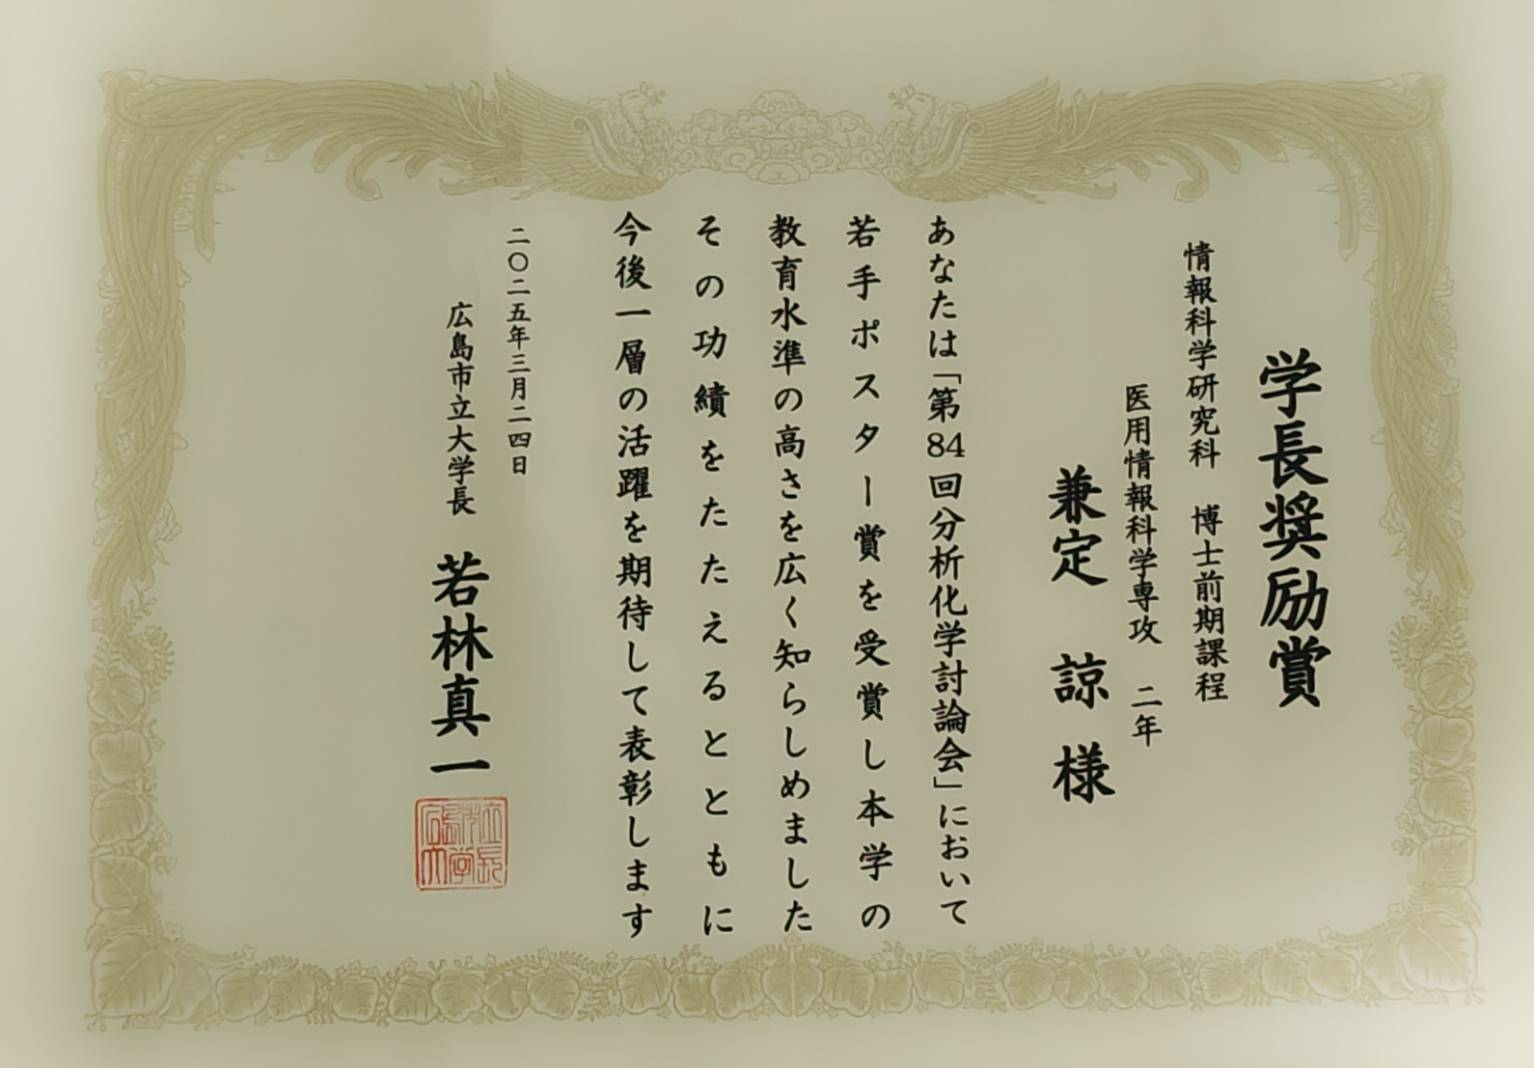 学長奨励賞
情報科学研究科　博士前期課程
医用情報科学専攻　二年
兼定　諒　様
あなたは「第84回分析化学討論会」において
若手ポスター賞を受賞し本学の
教育水準の高さを広く知らしめました
その功績をたたえるとともに
今後一層の活躍を期待して表彰します
二〇二五年三月二四日
広島市立大学長　若林真一
広島市立大学長